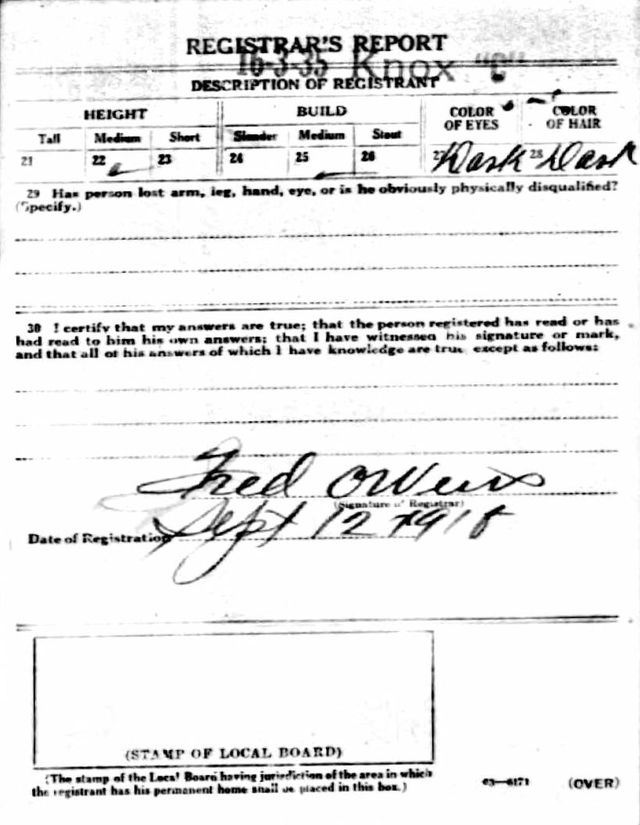 REGISTRAR'S REPORT
16-3-35 Knox "C"
DESCRIPTION OF REGISTRANT
HEIGHT BUILD COLOR OF EYES COLOR OF HAIR
Tall Medium Short Slender Medium Stout
21 22 23 24 25 26 27 Dark 28 Dark
29 Has person lost arm, leg, hand, eye, or is he obviously physically disqualified?
(Specify.)
30 I certify that my answers are true; that the person registered has read or has
had read to him his own answers; that I have witnessed his signature or mark,
and that all of his answers of which I have knowledge are true, except as follows:
Fred Owens
(Signature of Registrar)
Date of Registration Sept 12 1918
(STAMP OF LOCAL BOARD)
(The stamp of the Local Board having jurisdiction of the area in which
the registrant has his permanent home shall be placed in this box.)
03—6171 (OVER)